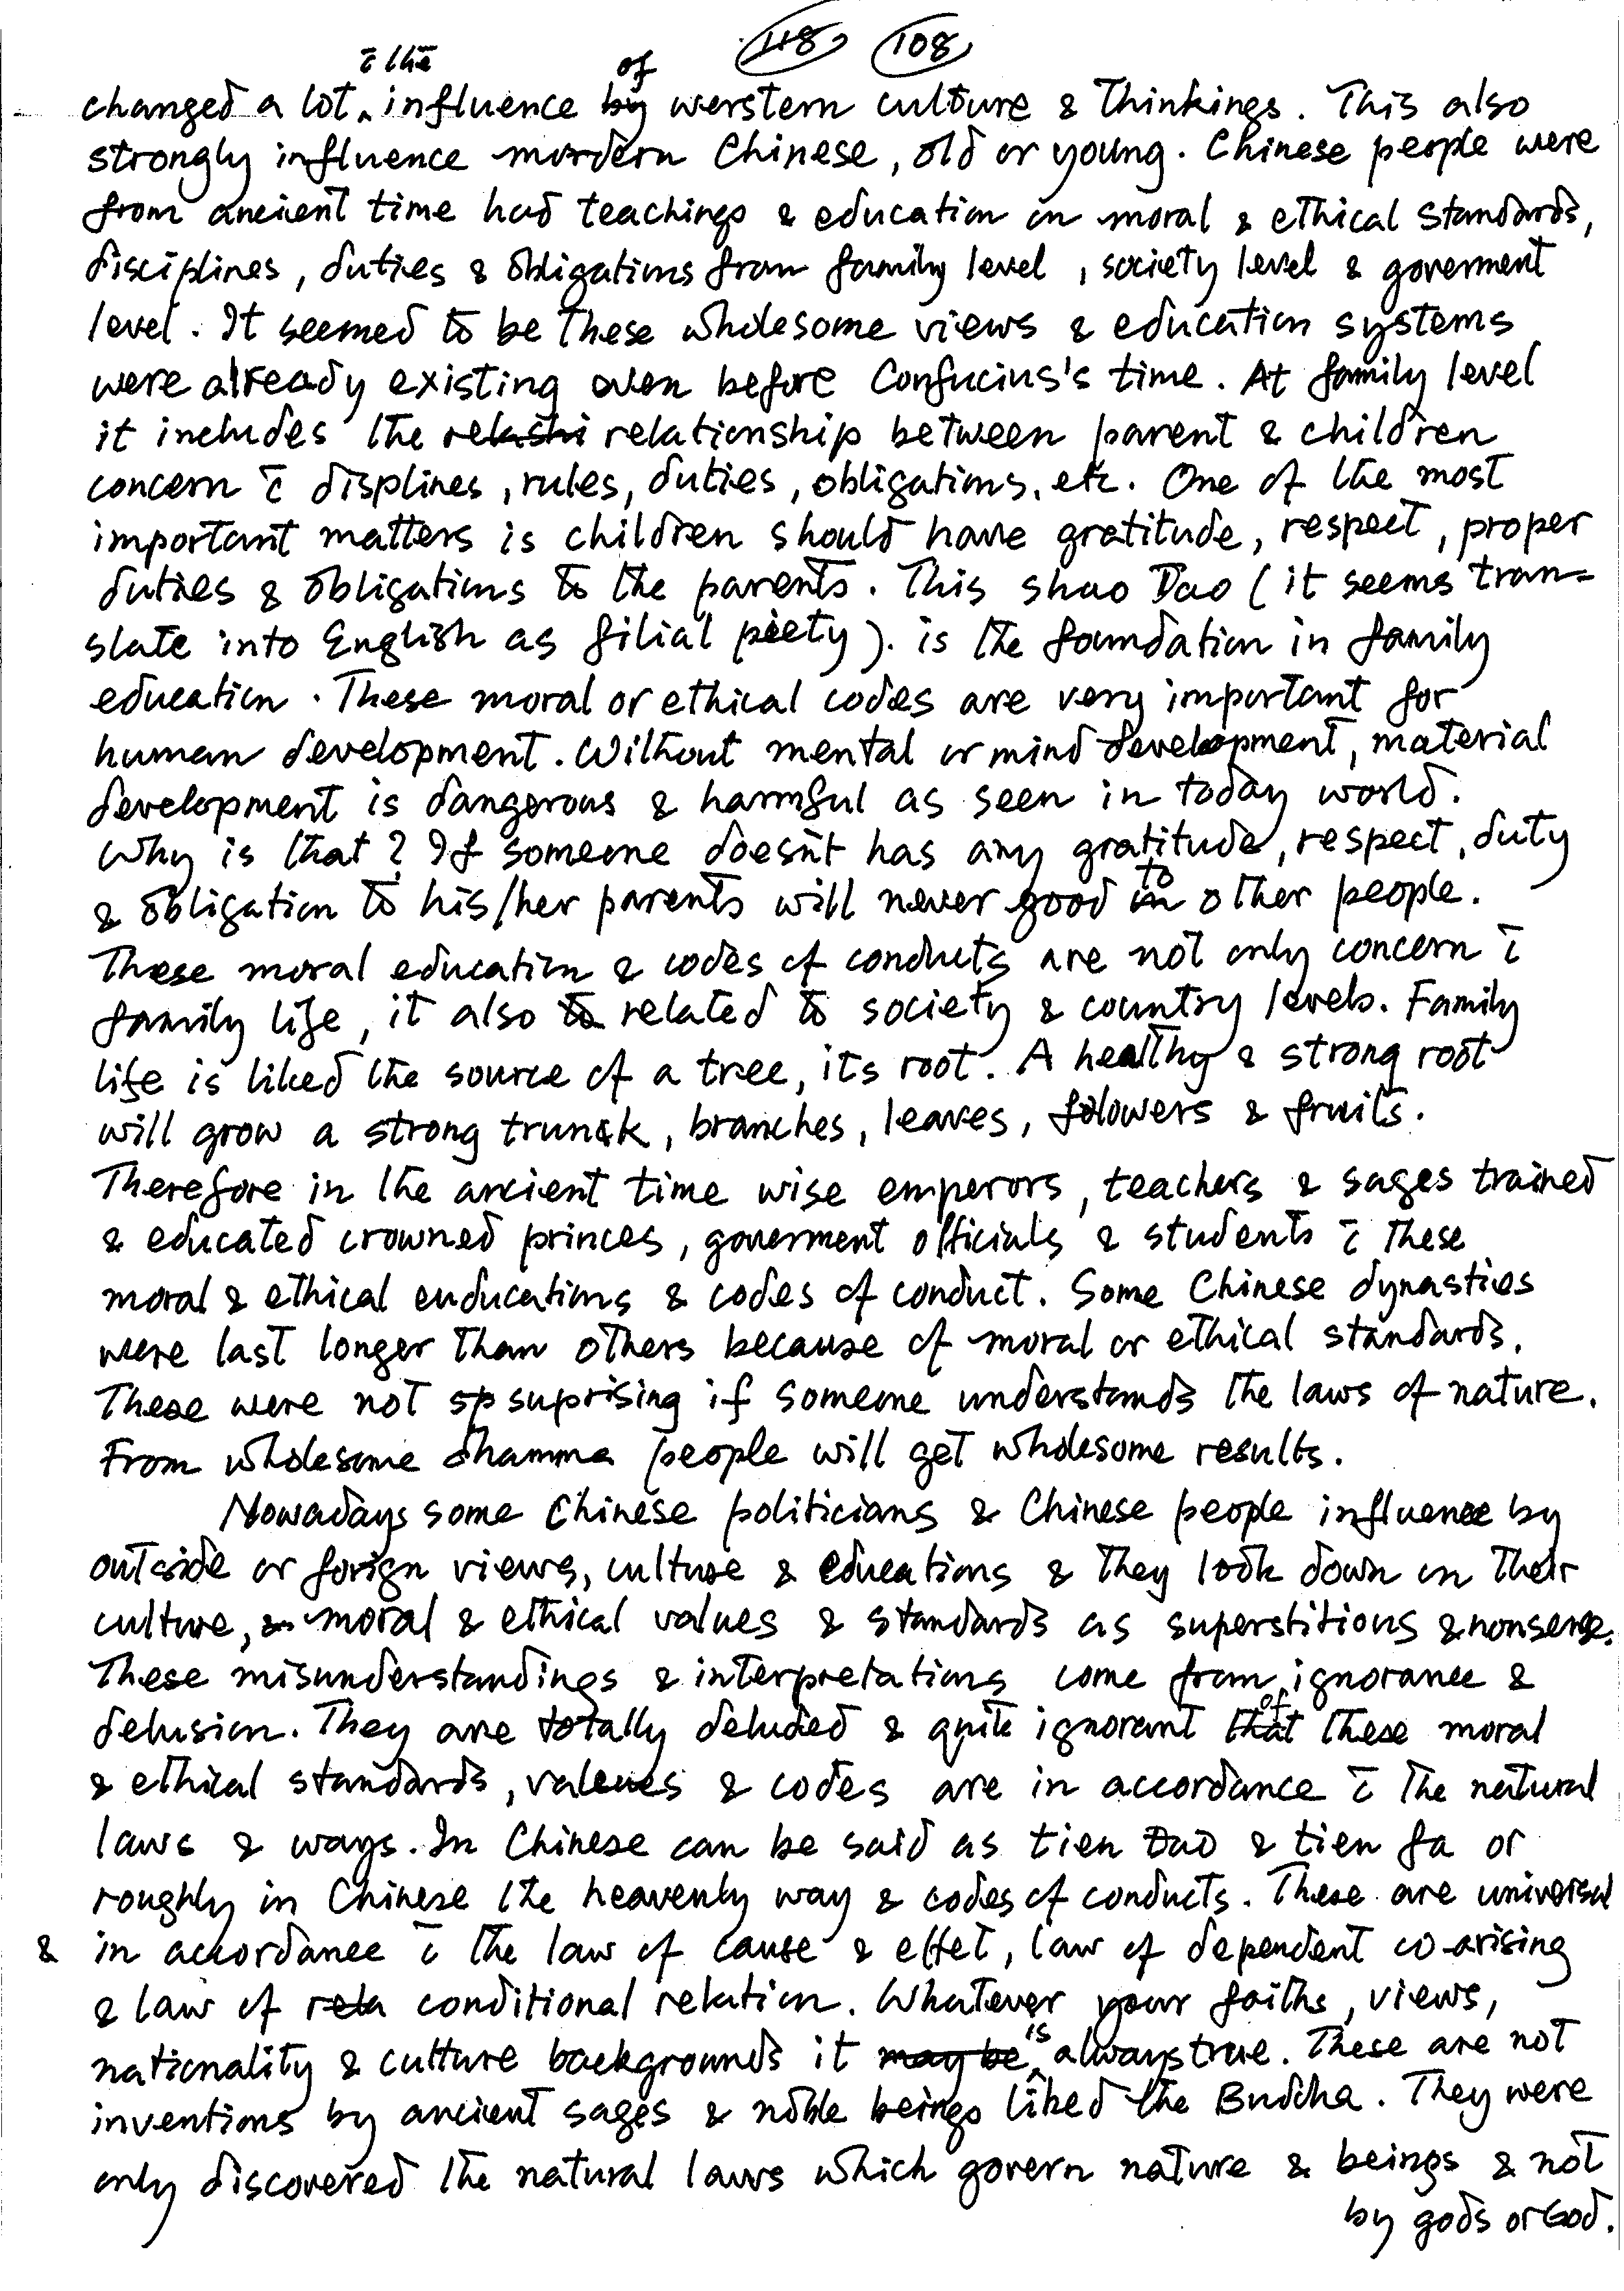 118 108
c̄ the of
changed a lot ‸ influence by werstern culture & Thinkings. This also
strongly influence mordern Chinese, old or young. Chinese people were
from ancient time had teachings & education in moral & ethical standards,
disciplines, duties & obligations from family level, society level & goverment
level. It seemed to be these wholesome views & education systems
were already existing even before Confucius's time. At family level
it includes the relashi relationship between parent & children
concern c̄ displines, rules, duties, obligations, etc. One of the most
important matters is children should have gratitude, respect, proper
duties & obligations to the parents. This shao Dao (it seems tran=
slate into English as filial piety). is the foundation in family
education. These moral or ethical codes are very important for
human development. Without mental or mind development, material
development is dangerous & harmful as seen in today world.
Why is that? If someone doesn't has any gratitude, respect, duty
& obligation to his/her parents will never good in to other people.
These moral education & codes of conducts are not only concern c̄
family life, it also to related to society & country levels. Family
life is liked the source of a tree, its root. A healthy & strong root
will grow a strong trunk, branches, leaves, folowers & fruits.
Therefore in the ancient time wise emperors, teachers & sages trained
& educated crowned princes, goverment officials & students c̄ these
moral & ethical enducations & codes of conduct. Some Chinese dynasties
were last longer than others because of moral or ethical standards.
These were not sp suprising if someone understands the laws of nature.
From wholesome dhamma people will get wholesome results.
Nowadays some Chinese politicians & Chinese people influence by
outside or forign views, culture & educations & they look down on their
culture, moral & ethical values & standards as superstitions & nonsense.
These misunderstandings & interpretations come from ignorance &
delusion. They are totally deluded & quite ignorant that of these moral
& ethical standards, values & codes are in accordance c̄ the natural
laws & ways. In Chinese can be said as tien Dao & tien fa or
roughly in Chinese the heavenly way & codes of conducts. These are universal
& in accordance c̄ the law of cause & effet, law of dependent co-arising
& law of rela conditional relation. Whatever your faiths, views,
nationality & culture backgrounds it may be is always true. These are not
inventions by ancient sages & noble beings liked the Buddha. They were
only discovered the natural laws which govern nature & beings & not
by gods or God.